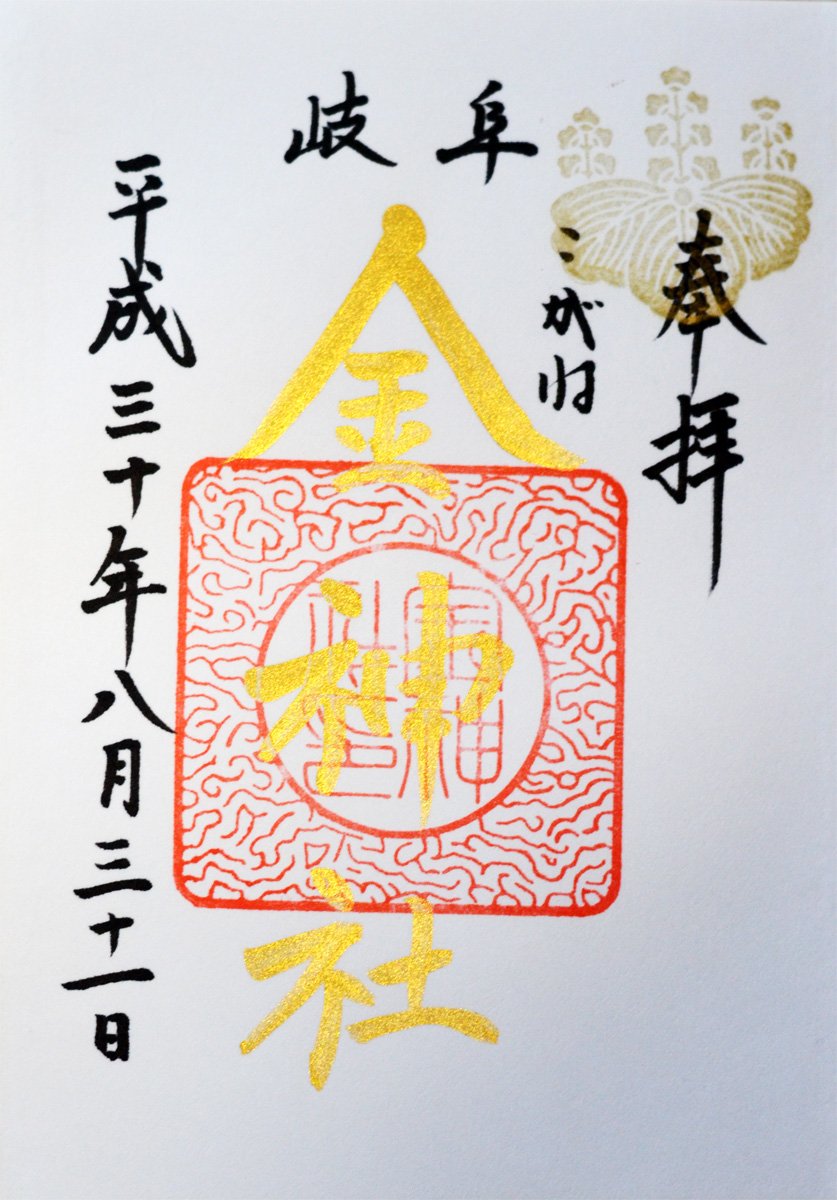 奉拝
こがね
岐阜
金神社
平成三十年八月三十一日